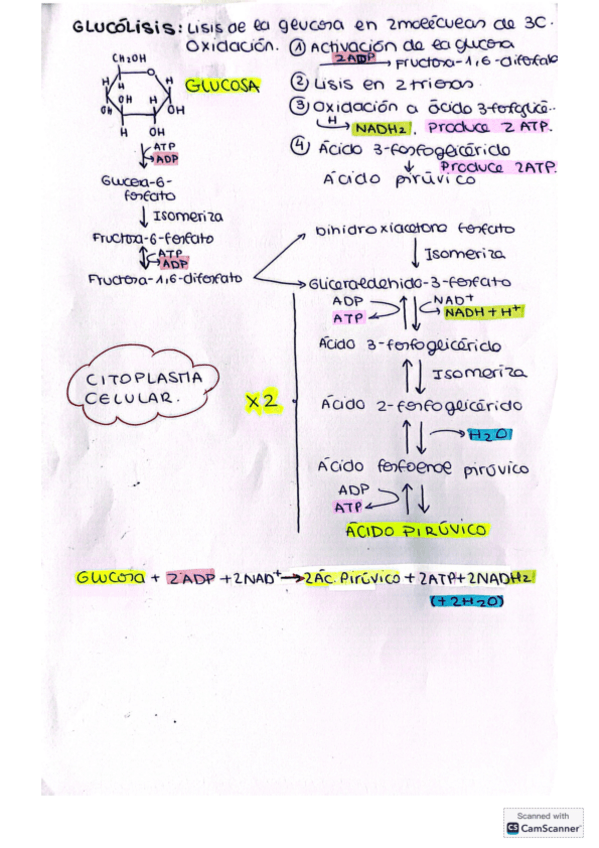 GLUCÓLISIS: Lisis de la glucosa en 2 moléculas de 3C.
Oxidación. ① Activación de la glucosa
2ADP → Fructosa-1,6-difosfato
② Lisis en 2 triosas.
③ Oxidación a ácido 3-fosfglicé..
H → NADH2. Produce 2 ATP.
④ Ácido 3-fosfoglicérido
↓ Produce 2ATP.
Ácido pirúvico
CH2OH
O
H
H
H
OH
H
OH
OH
H
OH
GLUCOSA
ATP
ADP
Glucosa-6-
fosfato
↓ Isomeriza
Fructosa-6-fosfato
ATP
ADP
Fructosa-1,6-difosfato
Dihidroxiacetona fosfato
↓ Isomeriza
Gliceraldehido-3-fosfato
ADP
ATP
NAD+
NADH + H+
Ácido 3-fosfoglicérido
Isomeriza
Ácido 2-fosfoglicérido
H2O
Ácido fosfoenol pirúvico
ADP
ATP
ÁCIDO PIRÚVICO
CITOPLASMA
CELULAR.
X2
Glucosa + 2ADP + 2NAD+ → 2Ác. Pirúvico + 2ATP + 2NADH2
(+ 2H2O)
Scanned with
CS CamScanner